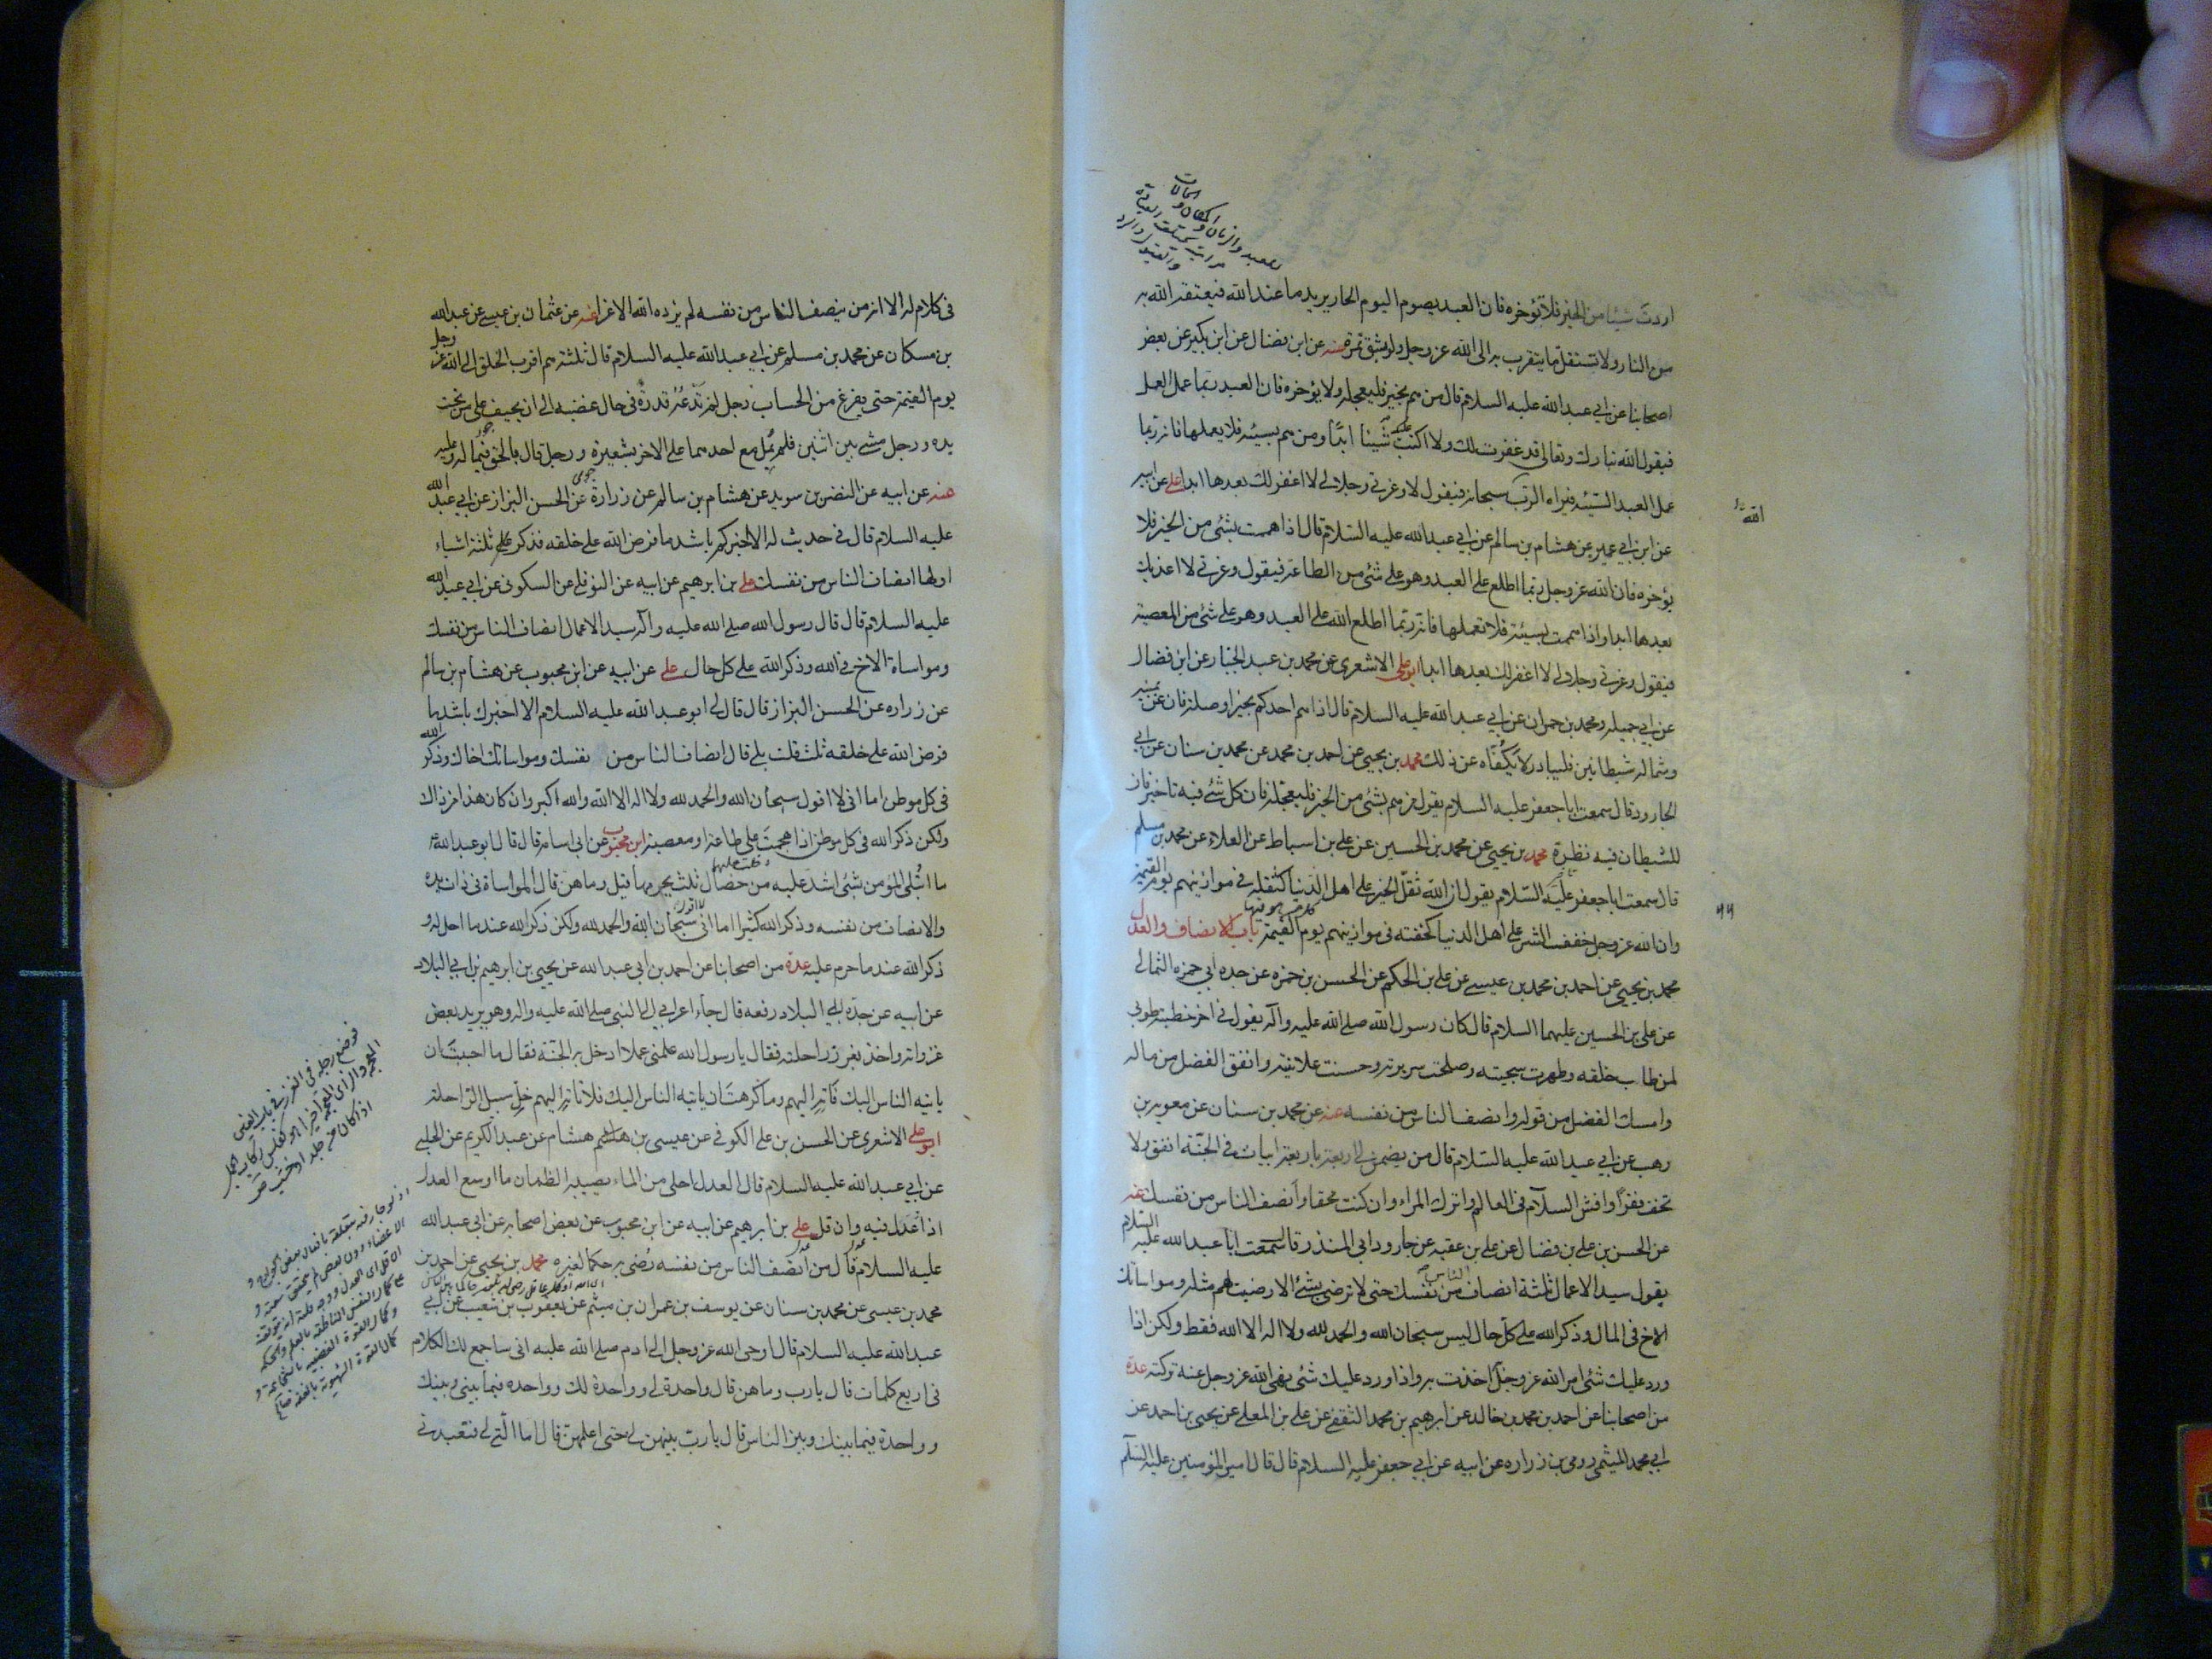 اردت شيئا من الخير فلا تؤخره فان العبد يصوم اليوم الحار يريد ما عند الله فيعتقه الله به
من النار ولا تستقل ما يتقرب به الى الله عز وجل ولو بشق تمرة عنه عن ابن فضال عن ابن بكير عن بعض
اصحابنا عن ابي عبد الله عليه السلام قال من هم بخير فليعجله ولا يؤخره فان العبد ربما عمل العمل
فيقول الله تبارك وتعالى قد غفرت لك ولا اكتب عليك شيئا ابدا ومن هم بسيئة فلا يعملها فانه ربما
عمل العبد السيئة فيراه الرب سبحانه فيقول لا وعزتي وجلالي لا اغفر لك بعدها ابدا علي عن ابيه
عن ابن ابي عمير عن هشام بن سالم عن ابي عبد الله عليه السلام قال اذا هممت بشئ من الخير فلا
يؤخره فان الله عز وجل ربما اطلع على العبد وهو على شئ من الطاعة فيقول وعزتي لا اعذبك
بعدها ابدا واذا هممت بسيئة فلا تعملها فانه ربما اطلع الله على العبد وهو على شئ من المعصية
فيقول وعزتي وجلالي لا اغفر لك بعدها ابدا ابو علي الاشعري عن محمد بن عبد الجبار عن ابن فضال
عن ابي جميله ومحمد بن حمران عن ابي عبد الله عليه السلام قال اذا هم احدكم بخير او صلة فان عن يمينه
وشماله شيطانين فليبادر لا يكفاه عن ذلك محمد بن يحيى عن احمد بن محمد عن محمد بن سنان عن ابي
الجارود قال سمعت ابا جعفر عليه السلام يقول من هم بشئ من الخير فليعجله فان كل شئ فيه تاخير فان
للشيطان فيه نظرة محمد بن يحيى عن محمد بن الحسين عن علي بن اسباط عن العلاء عن محمد بن مسلم
قال سمعت ابا جعفر عليه السلام يقول ان الله ثقل الخير على اهل الدنيا كثقله في موازينهم يوم القيمة
وان الله عز وجل خفف الشر على اهل الدنيا كخفته في موازينهم يوم القيمة باب الانصاف والعدل
محمد بن يحيى عن احمد بن محمد بن عيسى عن علي بن الحكم عن الحسن بن حمزه عن جده ابي حمزه الثمالي
عن علي بن الحسين عليهما السلام قال كان رسول الله صلى الله عليه وآله يقول في اخر خطبته طوبى
لمن طاب خلقه وطهرت سجيته وصلحت سريرته وحسنت علانيته وانفق الفضل من ماله
وامسك الفضل من قوله وانصف الناس من نفسه عنه عن محمد بن سنان عن معويه بن
وهب عن ابي عبد الله عليه السلام قال من يضمن لي اربعة باربعة ابيات في الجنة انفق ولا
تخف فقرا وافش السلام في العالم واترك المراء وان كنت محقا وانصف الناس من نفسك عنه
عن الحسن بن علي بن فضال عن علي بن عقبه عن جارود ابي المنذر قال سمعت ابا عبد الله عليه السلام
يقول سيد الاعمال ثلثة انصاف الناس من نفسك حتى لا ترضى بشئ الا رضيت لهم مثله ومواساتك
الاخ في المال وذكر الله على كل حال ليس سبحان الله والحمد لله ولا اله الا الله فقط ولكن اذا
ورد عليك شئ امر الله عز وجل اخذت به واذا ورد عليك شئ نهى الله عز وجل عنه تركته عدة
من اصحابنا عن احمد بن محمد بن خالد عن ابرهيم بن محمد الثقفي عن علي بن المعلى عن يحيى بن احمد عن
ابي محمد الميثمي رومى بن زراره عن ابيه عن ابي جعفر عليه السلام قال قال امير المؤمنين عليه السلام
في كلام له الا انه من ينصف الناس من نفسه لم يزده الله الا عزا عنه عن عثمان بن عيسى عن عبد الله
بن مسكان عن محمد بن مسلم عن ابي عبد الله عليه السلام قال ثلثة هم اقرب الخلق الى الله عز وجل
يوم القيمة حتى يفرغ من الحساب رجل لم تدعه قدرة في حال غضبه الى ان يحيف على من تحت
يده ورجل مشى بين اثنين فلم يمل مع احدهما على الاخر بشعيرة ورجل قال بالحق فيما له وعليه
عنه عن ابيه عن النضر بن سويد عن هشام بن سالم عن زرارة عن الحسن البزاز عن ابي عبد الله
عليه السلام قال في حديث له الا اخبركم باشد ما فرض الله على خلقه فذكر ثلثة اشياء
اولها انصاف الناس من نفسك علي بن ابرهيم عن ابيه عن النوفلي عن السكوني عن ابي عبد الله
عليه السلام قال قال رسول الله صلى الله عليه وآله سيد الاعمال انصاف الناس من نفسك
ومواساة الاخ في الله وذكر الله على كل حال علي عن ابيه عن ابن محبوب عن هشام بن سالم
عن زراره عن الحسن البزاز قال قال لي ابو عبد الله عليه السلام الا اخبرك باشد ما
فرض الله على خلقه ثلث قلت بلى قال انصاف الناس من نفسك ومواساتك اخاك وذكر الله
في كل موطن اما اني لا اقول سبحان الله والحمد لله ولا اله الا الله والله اكبر وان كان هذا من ذاك
ولكن ذكر الله في كل موطن اذا هجمت على طاعة او معصية ابن محبوب عن ابي اسامة قال قال ابو عبد الله
ما ابتلى المؤمن بشئ اشد عليه من خصال ثلث يحرمها قيل وما هن قال المواساة في ذات يده
والانصاف من نفسه وذكر الله كثيرا اما اني لا اقول سبحان الله والحمد لله ولكن ذكر الله عند ما احل له و
ذكر الله عند ما حرم عليه عدة من اصحابنا عن احمد بن ابي عبد الله عن يحيى بن ابرهيم بن ابي البلاد
عن ابيه عن جده ابي البلاد رفعه قال جاء اعرابي الى النبي صلى الله عليه واله وهو يريد بعض
غزواته واخذ بغرز راحلته فقال يا رسول الله علمني عملا ادخل به الجنة فقال ما احببت ان
ياتيه الناس اليك فاته اليهم وما كرهت ان ياتيه الناس اليك فلا تاته اليهم خل سبيل الراحلة
ابو علي الاشعري عن الحسن بن علي الكوفي عن عيسى بن هشام عن عبد الكريم عن الحلبي
عن ابي عبد الله عليه السلام قال العدل احلى من الماء يصيبه الظمان ما اوسع العدل
اذا عدل فيه وان قل علي بن ابرهيم عن ابيه عن ابن محبوب عن بعض اصحابه عن ابي عبد الله
عليه السلام قال من انصف الناس من نفسه رضى به حكما لغيره محمد بن يحيى عن احمد بن
محمد بن عيسى عن محمد بن سنان عن يوسف بن عمران بن ميثم عن يعقوب بن شعيب عن ابي
عبد الله عليه السلام قال اوحى الله عز وجل الى ادم صلى الله عليه اني ساجمع لك الكلام
في اربع كلمات قال يا رب وما هن قال واحدة لي وواحدة لك وواحده فيما بيني وبينك
وواحدة فيما بينك وبين الناس قال يا رب بينهن لي حتى اعلمهن قال اما التي لي فتعبدني